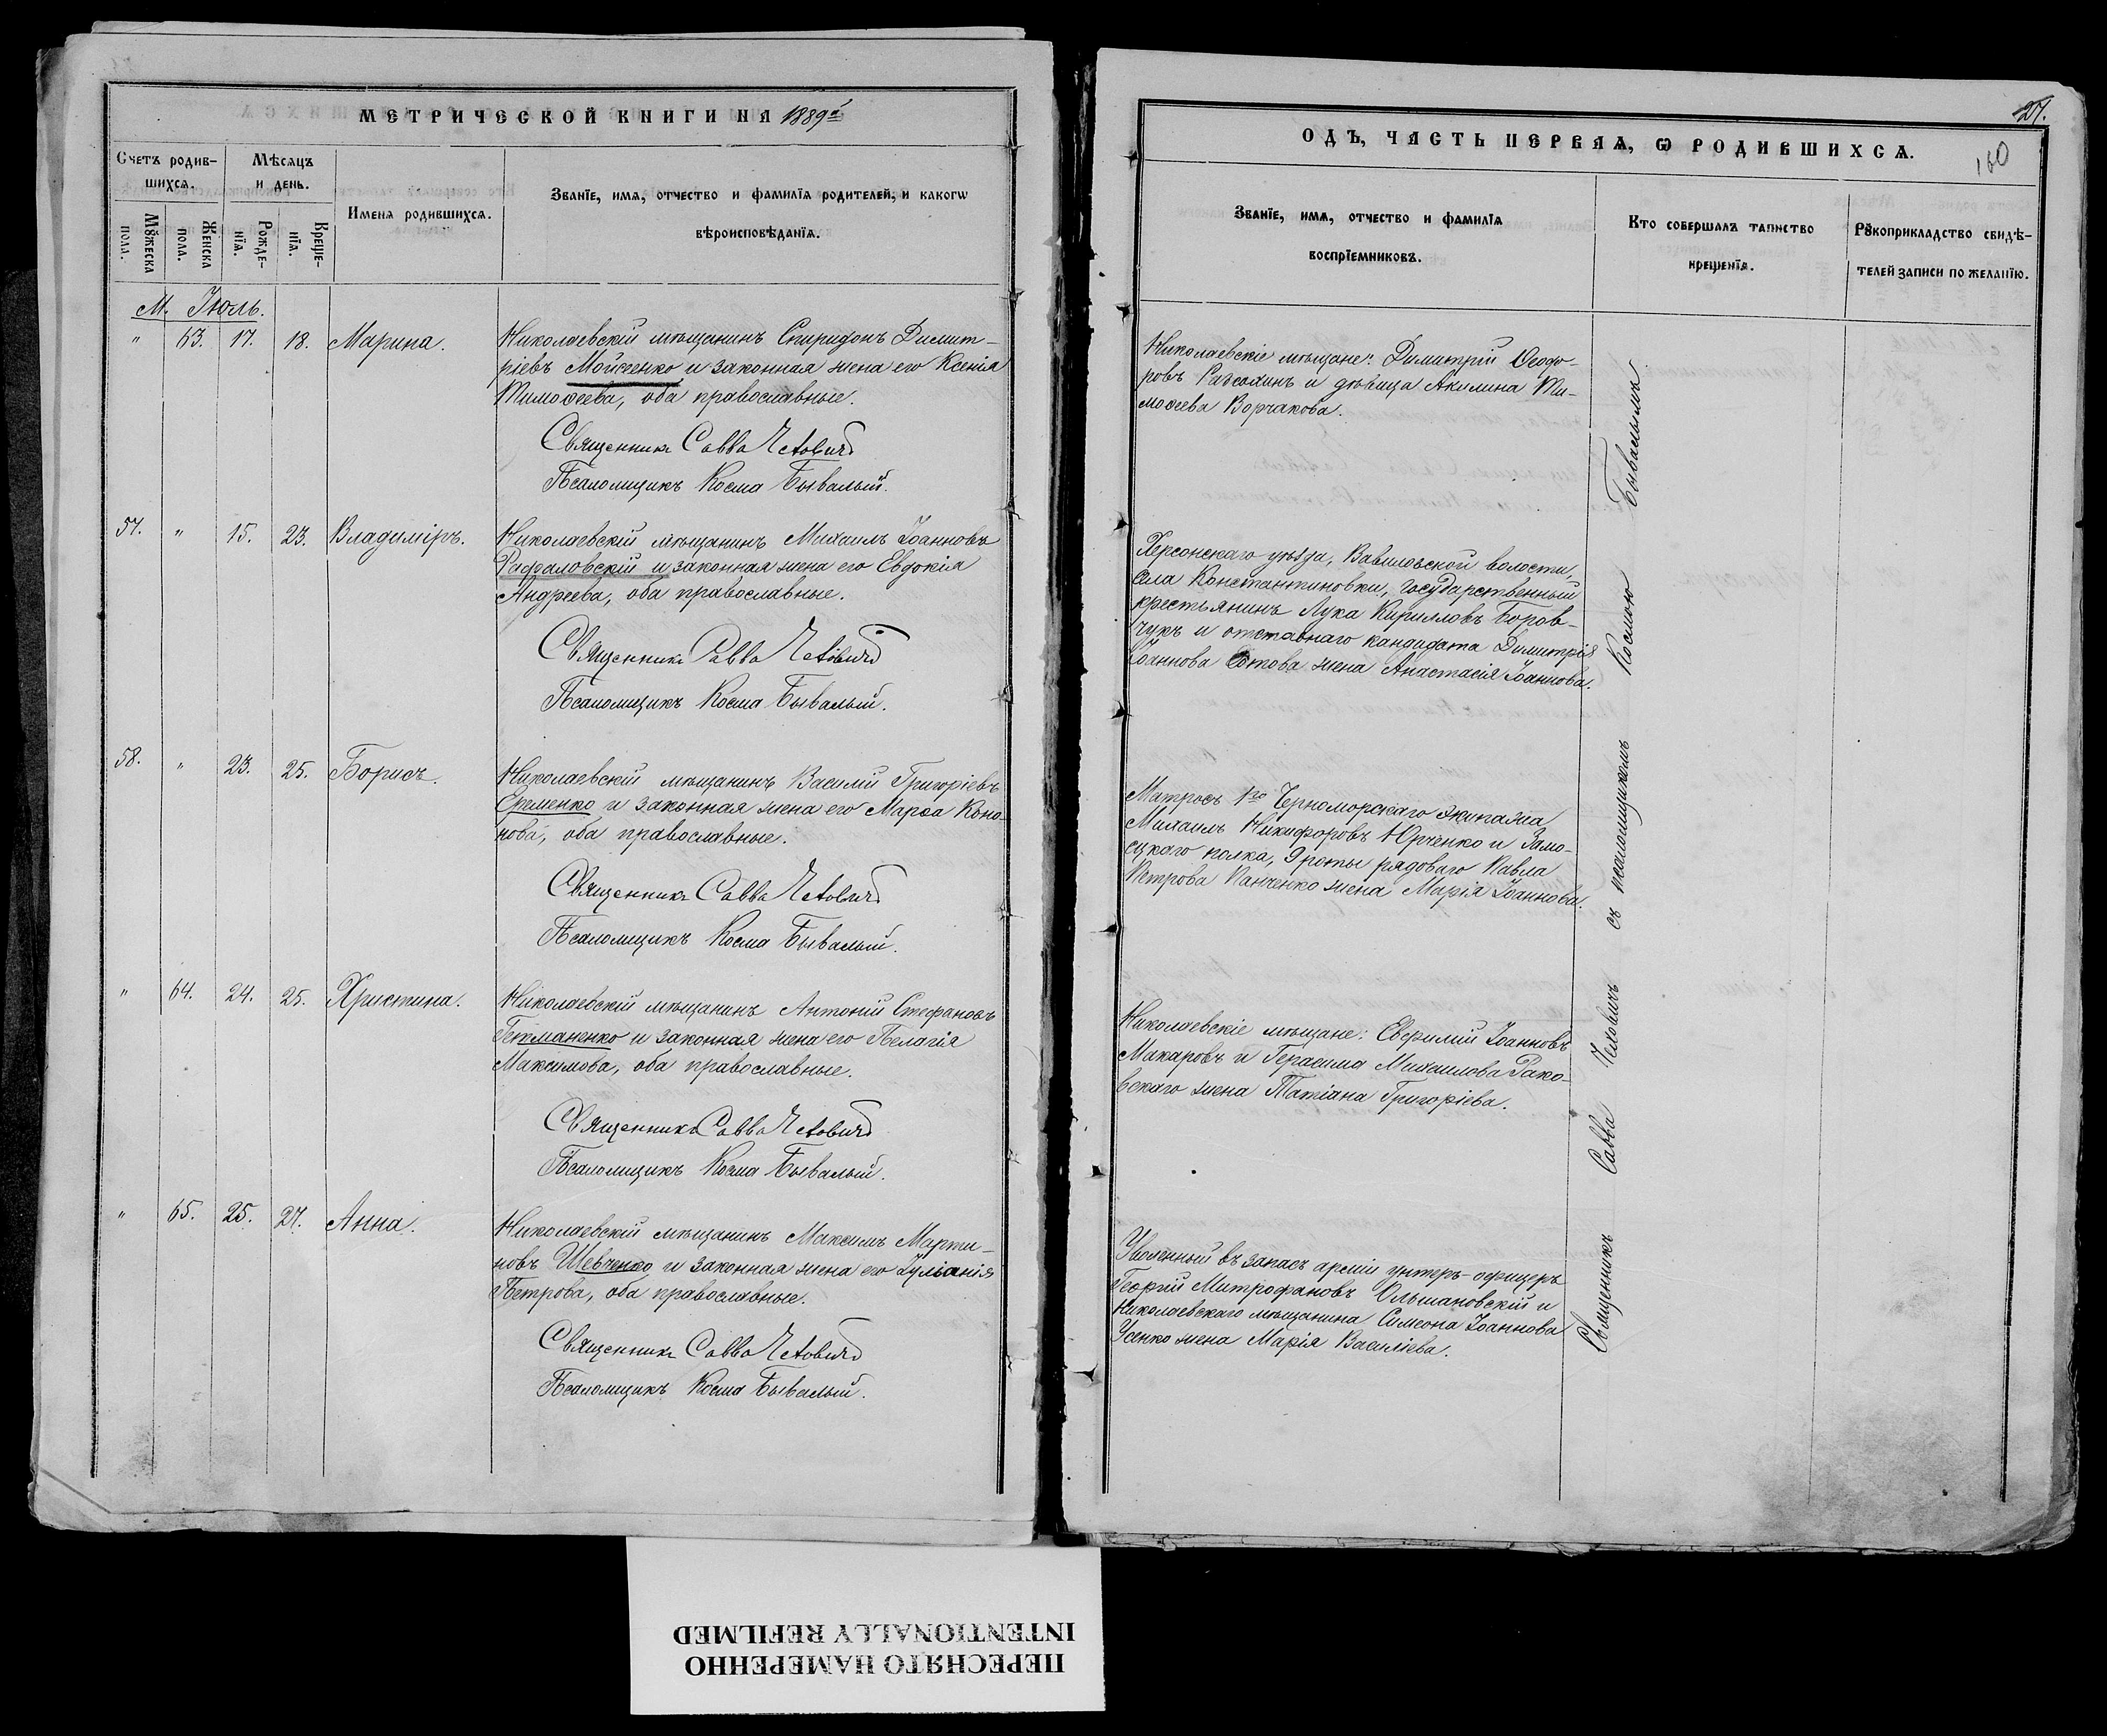 МЕТРИЧЕСКОЙ КНИГИ НА 1889й
Счетъ родив-
шихсѧ.
Мѣсѧцъ
и день.
Имена родившихсѧ.
Званїе, имѧ, отчество и фамилїѧ родителей, и какогѡ
вѣроисповѣданїѧ.
Мꙋжеска
пола.
Женска
пола.
Рожде-
нїѧ.
Креще-
нїѧ.
М. Іюль.
" 63. 17. 18. Марина. Николаевскій мѣщанинъ Спиридонъ Димит-
ріевъ Мойсеенко и законная жена его Ксенія
Тимоѳеева, оба православные.
Священникъ Савва
Псаломщикъ Косма Бывалый.
57. " 15. 23. Владиміръ. Николаевскій мѣщанинъ Михаилъ Іоанновъ
Рафаловскій и законная жена его Евдокія
Андреева, оба православные.
Священникъ Савва
Псаломщикъ Косма Бывалый.
58. " 23. 25. Борисъ. Николаевскій мѣщанинъ Василій Григоріевъ
Еременко и законная жена его Марѳа Коно-
нова, оба православные.
Священникъ Савва
Псаломщикъ Косма Бывалый.
" 64. 24. 25. Христина. Николаевскій мѣщанинъ Антоній Стефановъ
Гетманенко и законная жена его Пелагія
Максимова, оба православные.
Священникъ Савва
Псаломщикъ Косма Бывалый.
" 65. 25. 27. Анна. Николаевскій мѣщанинъ Максимъ Марти-
новъ Шевченко и законная жена его Іуліанія
Петрова, оба православные.
Священникъ Савва
Псаломщикъ Косма Бывалый.
27.
160
ОДЪ, ЧАСТЬ ПЕРВАЯ, Ѡ РОДИВШИХСѦ.
Званїе, имѧ, отчество и фамилїѧ
воспрїемниковъ.
Кто совершалъ таинство
крещенїѧ.
Рꙋкоприкладство свидѣ-
телей записи по желанїю.
Николаевскіе мѣщане: Димитрій Ѳеодо-
ровъ и дѣвица Акилина Ти-
моѳеева Ворчакова.
Херсонскаго уѣзда, Вавиловской волости,
села Константиновки, государственный
крестьянинъ Лука Кирилловъ Боров-
чукъ и отставнаго кандидата Димитрія
Іоаннова жена Анастасія Іоаннова.
Матросъ 1го Черноморскаго экипажа
Михаилъ Никифоровъ Юрченко и Замо-
сцкаго полка, 9 роты рядоваго Павла
Петрова Панченко жена Марія Іоаннова.
Николаевскіе мѣщане: Евфимій Іоанновъ
Макаровъ и Герасима Михаилова Рако-
вскаго жена Татіана Григоріева.
Уволенный въ запасъ арміи унтеръ-офицеръ
Георгій Митрофановъ Ольшановскій и
Николаевскаго мѣщанина Симеона Іоаннова
Усенко жена Марія Василіева.
Священникъ Савва Человичъ съ псаломщикомъ Космою Бывалымъ
ПЕРЕСНЯТО НАМЕРЕННО
INTENTIONALLY REFILMED